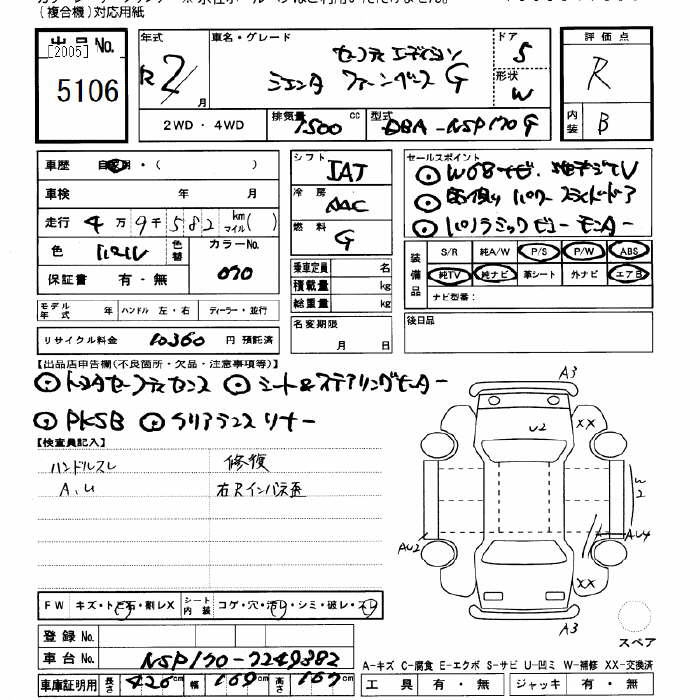 (複合機)対応用紙
出品 No.
[2005]
5106
年式
R2
月
車名・グレード
セーフティ エディション
シエンタ ファンベース G
ドア
5
形状
W
2WD ・ 4WD
排気量
1500
cc
型式
DBA-NSP170G
評価点
R
内装
B
車歴 自家用・( )
車検 年 月
走行 4万9千582 km マイル( )
色 パール 色替 カラーNo. 070
保証書 有・無
モデル年式 年 ハンドル 左・右 ディーラー・並行
リサイクル料金 10360 円 預託済
シフト IAT
冷房 AAC
燃料 G
乗車定員 名
積載量 kg
総重量 kg
名変期限
月 日
セールスポイント
⊙ W68ナビ. 地デジTV
⊙ 両側 パワースライドドア
⊙ パノラミックビューモニター
装備品
S/R 純A/W P/S P/W ABS
純TV 純ナビ 革シート 外ナビ エアB
ナビ型番:
後日品
【出品店申告欄(不良箇所・欠品・注意事項等)】
⊙ トヨタセーフティセンス ⊙ シート&ステアリングヒーター
⊙ PKSB ⊙ クリアランスソナー
【検査員記入】
ハンドルスレ 修復
A.U 右Rインパネ歪
A3
U2
XX
W2
AU2
AU4
XX
A3
スペア
FW キズ・トビ石・割レX シート内装 コゲ・穴・汚レ・シミ・破レ・スレ
登録 No.
車台 No. NSP170-7249382
車庫証明用 長さ 426cm 幅 169cm 高さ 167cm
A-キズ C-腐食 E-エクボ S-サビ U-凹ミ W-補修 XX-交換済
工具 有・無 ジャッキ 有・無